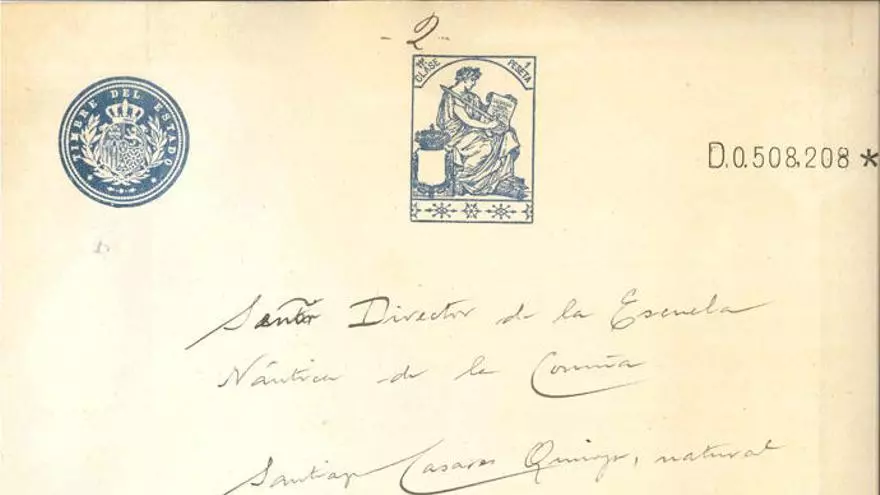 - 2 -
TIMBRE DEL ESTADO
11ª CLASE
1 PESETA
D.0.508,208 *
Señor Director de la Escuela
Náutica de la Coruña
Santiago Casares Quiroga, natural